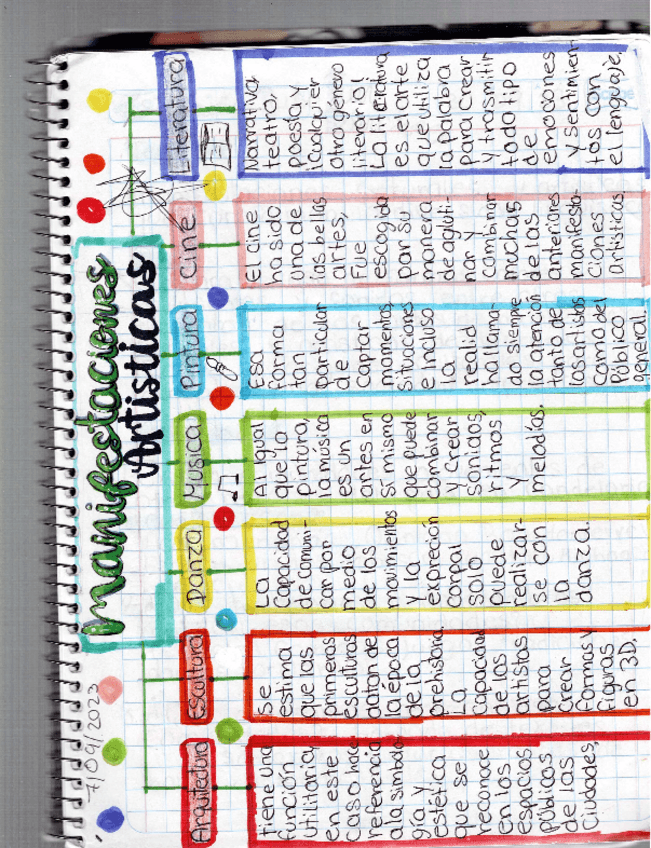 7/09/2023
Manifestaciones
Artisticas
Arquitectura
tiene una
función
utilitaria y
en este
caso hace
referencia
a la simbolo
gía y
estética
que se
reconoce
en los
espacios
Públicos
de las
Ciudades,
Escultura
Se
estima
que las
primeras
esculturas
datan de
la época
de la
prehistoria.
La
capacidad
de los
artistas
para
crear
formas y
Figuras
en 3D.
Danza
La
Capacidad
de comuni-
car por
medio
de los
movimientos
y la
expreción
corpal
solo
puede
realizar-
se con
la
danza.
Musica
Al igual
que la
pintura,
la música
es un
artes en
sí mismo
que puede
combinar
y crear
sonidos,
ritmos
y
melodías.
Pintura
Esa
forma
tan
particular
de
captar
momentos,
situaciones
e incluso
la
realid
ha llama-
do siempre
la atención
tanto de
los artistas
como del
Público
general.
Cine
El cine
ha sido
una de
las bellas
artes,
Fue
escogida
por su
manera
de agluti-
nar y
combinar
muchas
de las
anteriores
manifesta-
ciones
Artisticas
Literatura
Narrativa,
teatro,
poesía y
¡cualquier
otro género
literario!
La literatura
es el arte
que utiliza
la palabra
para crear
y trasmitir
todo tipo
de
emociones
y sentimien-
tos con
el lenguaje.